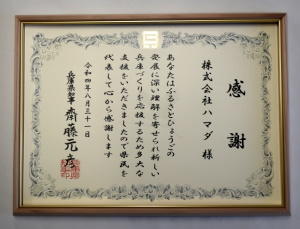 感謝
株式会社ハマダ 様
あなたはふるさとひょうごの
発展に深い理解を寄せられ新しい
兵庫づくりを応援するため多大な
支援をいただきましたので県民を
代表して心から感謝します
令和四年八月三十一日
兵庫県知事 齋藤元彦